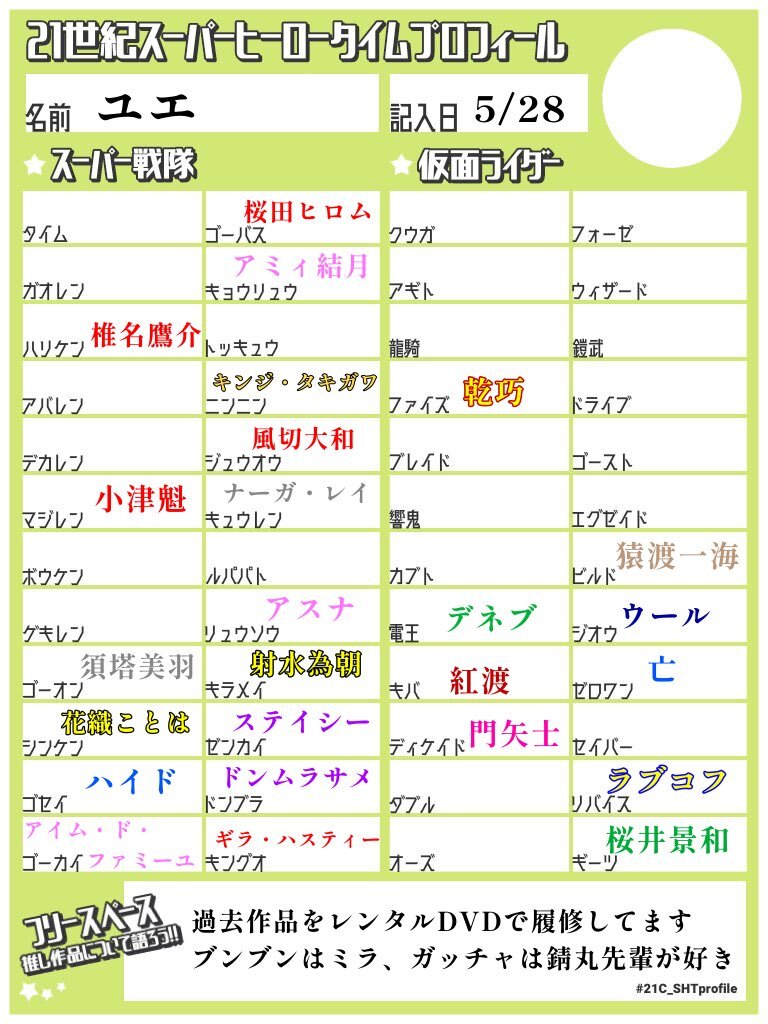 21世紀スーパーヒーロータイムプロフィール
名前 ユエ
記入日 5/28
スーパー戦隊
タイム
ガオレン
ハリケン 椎名鷹介
アバレン
デカレン
マジレン 小津魁
ボウケン
ゲキレン
ゴーオン 須塔美羽
シンケン 花織ことは
ゴセイ ハイド
アイム・ド・
ゴーカイ ファミーユ
ゴーバス 桜田ヒロム
キョウリュウ アミィ結月
トッキュウ
ニンニン キンジ・タキガワ
ジュウオウ 風切大和
キュウレン ナーガ・レイ
ルパパト
リュウソウ アスナ
キラメイ 射水為朝
ゼンカイ ステイシー
ドンブラ ドンムラサメ
キングオ ギラ・ハスティー
仮面ライダー
クウガ
アギト
龍騎
ファイズ 乾巧
ブレイド
響鬼
カブト
電王 デネブ
キバ 紅渡
ディケイド 門矢士
ダブル
オーズ
フォーゼ
ウィザード
鎧武
ドライブ
ゴースト
エグゼイド
ビルド 猿渡一海
ジオウ ウール
ゼロワン 亡
セイバー
リバイス ラブコフ
ギーツ 桜井景和
フリースペース
推し作品について語ろう!!
過去作品をレンタルDVDで履修してます
ブンブンはミラ、ガッチャは錆丸先輩が好き
#21C_SHTprofile